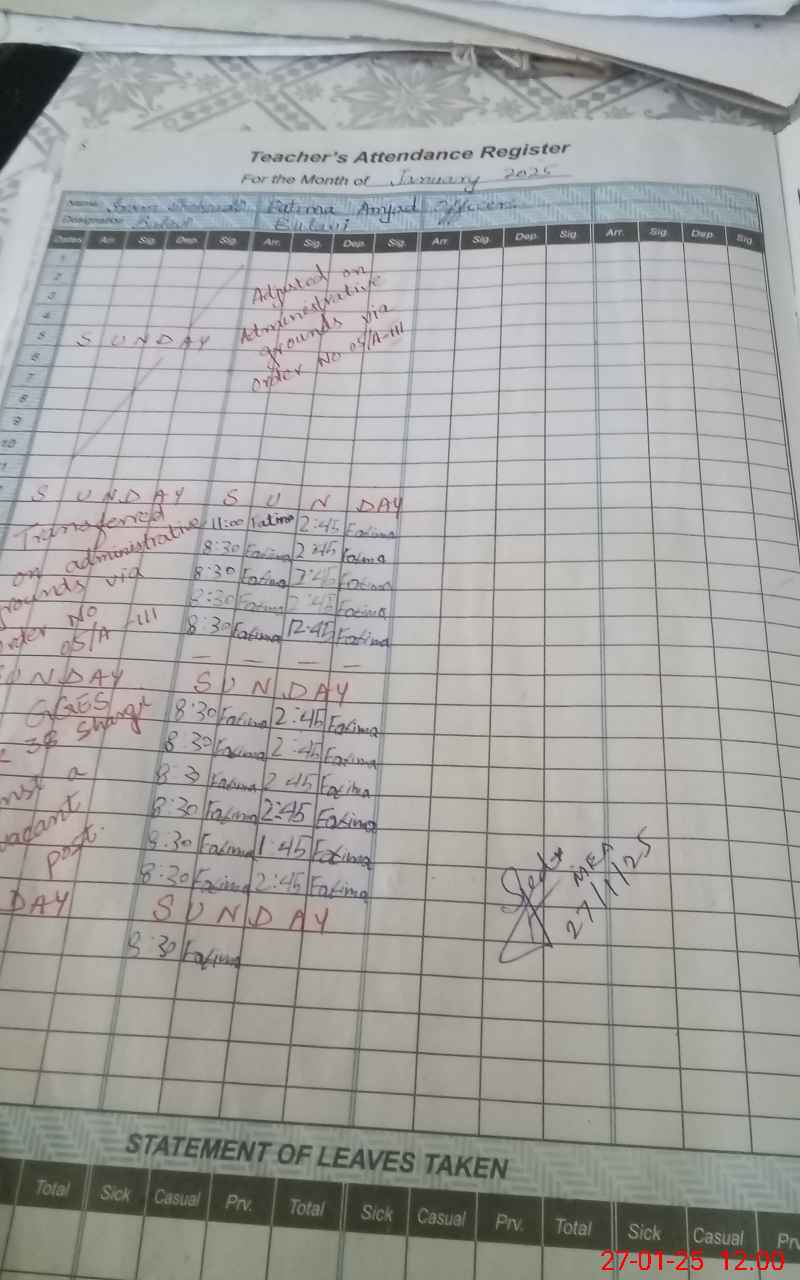 Teacher's Attendance Register
For the Month of January 2025
Name Fatima Amjad
Designation
Dates Arr. Sig. Dep. Sig. Arr. Sig. Dep. Sig. Arr. Sig. Dep. Sig. Arr. Sig. Dep. Sig.
1
2
3
4
5 SUNDAY
6
7
8
9
10
Adjusted on
Administrative
grounds via
order No 05/A-III
SUNDAY SUNDAY
Transferred
on administrative
grounds via
order No
05/A-III
11:00 Fatima 2:45 Fatima
8:30 Fatima 2:45 Fatima
8:30 Fatima 2:45 Fatima
8:30 Fatima 2:45 Fatima
8:30 Fatima 12:45 Fatima
— — — —
UNDAY SUNDAY
GGES
38
a
vacant
post.
8:30 Fatima 2:45 Fatima
8:30 Fatima 2:45 Fatima
8:30 Fatima 2:45 Fatima
8:30 Fatima 2:45 Fatima
8:30 Fatima 1:45 Fatima
8:30 Fatima 2:45 Fatima
DAY SUNDAY
8:30 Fatima
MEA
27/1/25
STATEMENT OF LEAVES TAKEN
Total Sick Casual Prv. Total Sick Casual Prv. Total Sick Casual
27-01-25 12:00